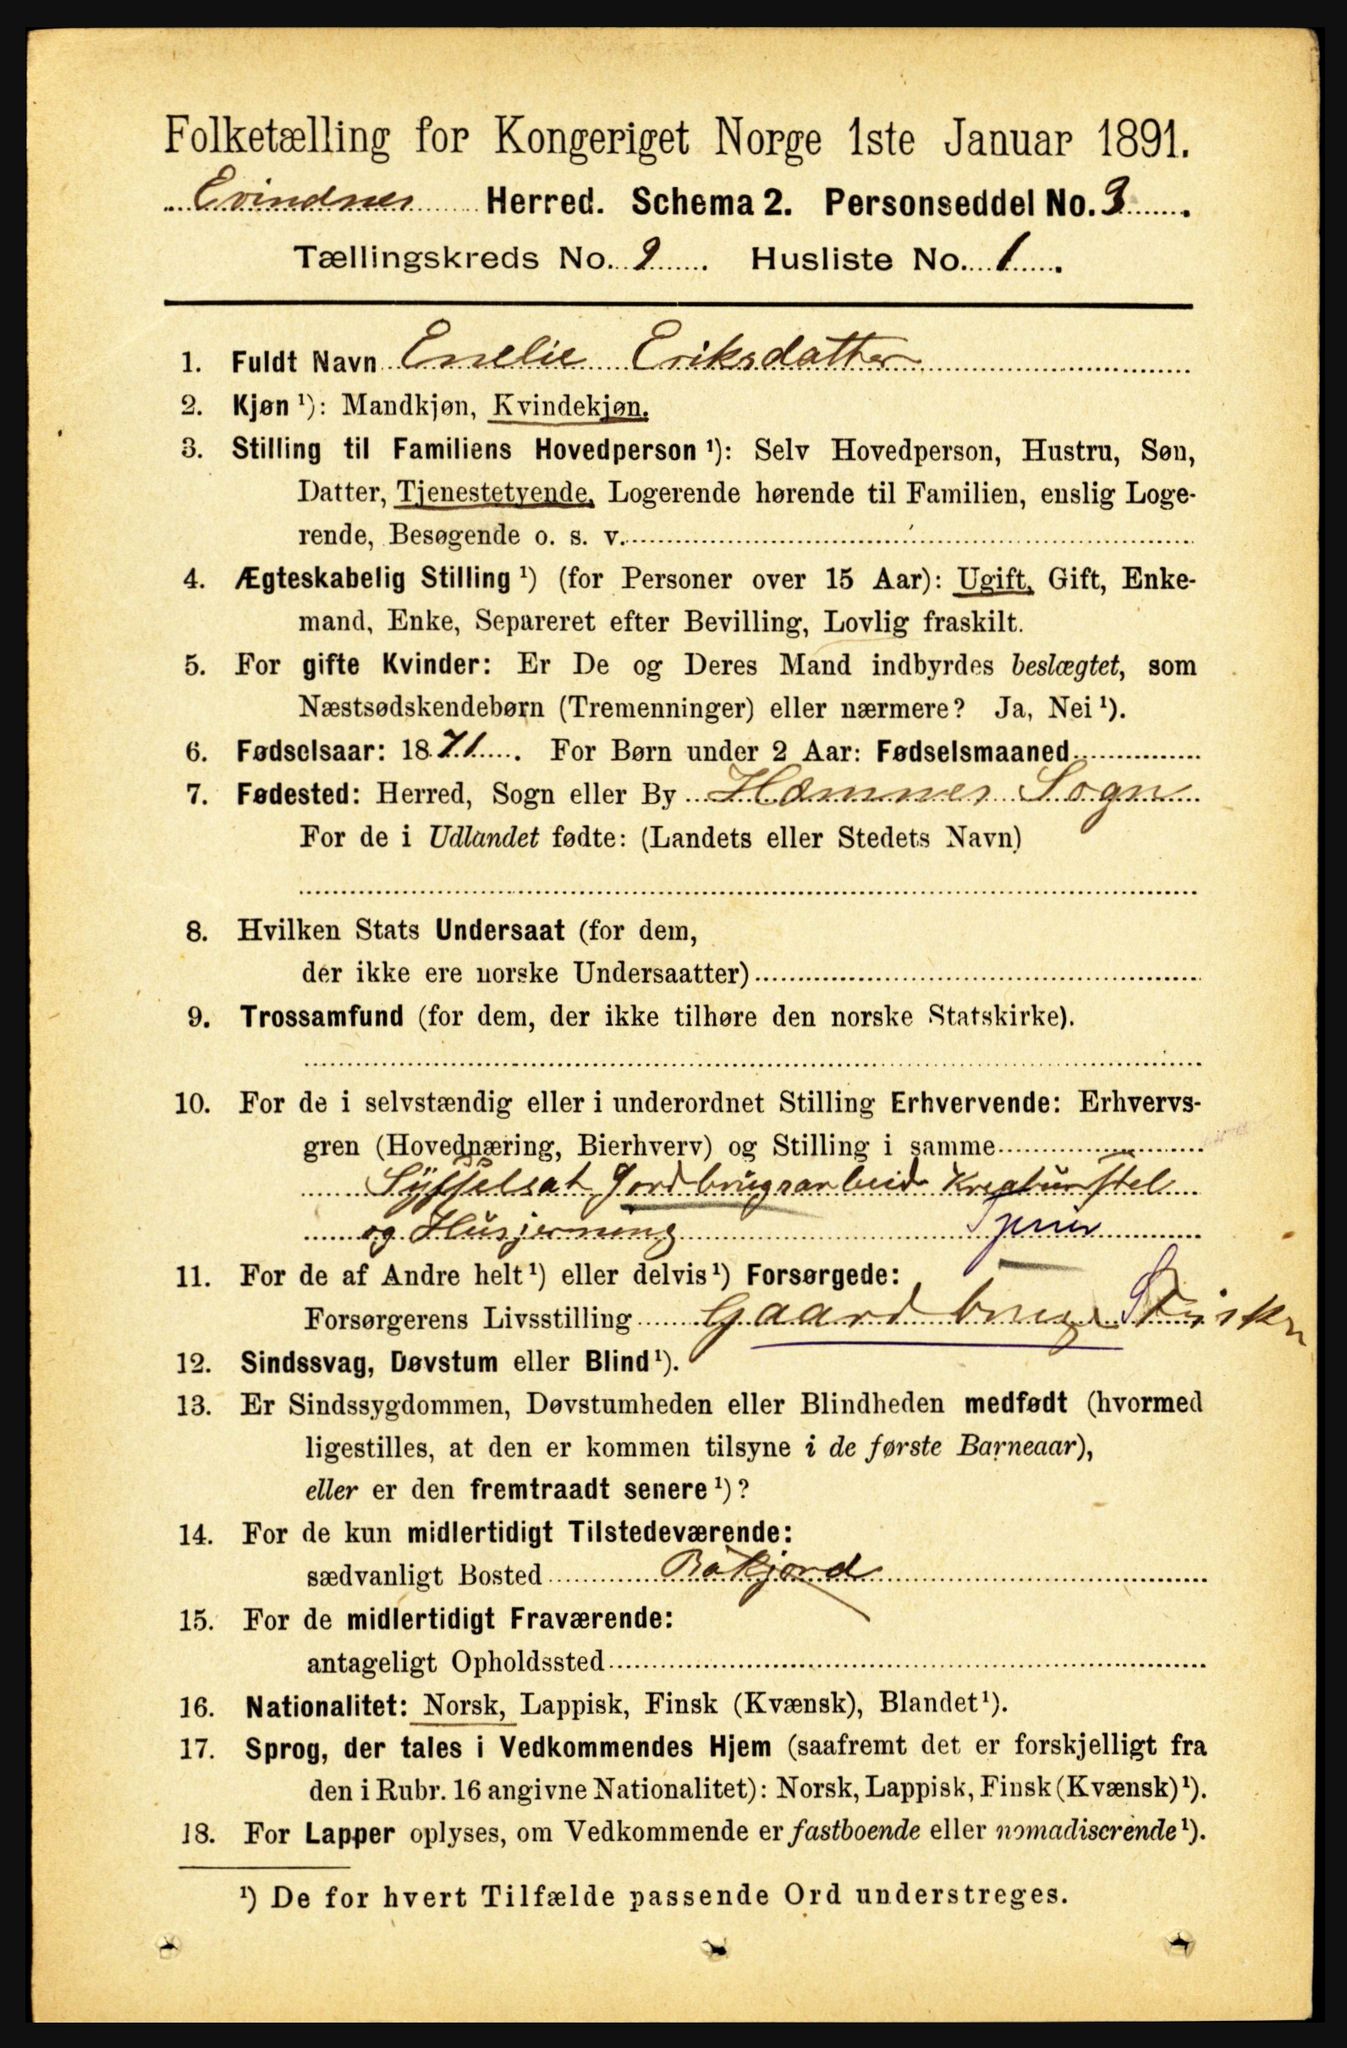 Folketælling for Kongeriget Norge 1ste Januar 1891.
Evindnes Herred. Schema 2. Personseddel No. 3.
Tællingskreds No. 9. Husliste No. 1.
1. Fuldt Navn Enelie Eriksdatter
2. Kjøn ¹): Mandkjøn, Kvindekjøn.
3. Stilling til Familiens Hovedperson ¹): Selv Hovedperson, Hustru, Søn,
Datter, Tjenestetyende, Logerende hørende til Familien, enslig Loge-
rende, Besøgende o. s. v.
4. Ægteskabelig Stilling ¹) (for Personer over 15 Aar): Ugift, Gift, Enke-
mand, Enke, Separeret efter Bevilling, Lovlig fraskilt.
5. For gifte Kvinder: Er De og Deres Mand indbyrdes beslægtet, som
Næstsødskendebørn (Tremenninger) eller nærmere? Ja, Nei ¹).
6. Fødselsaar: 1871. For Børn under 2 Aar: Fødselsmaaned
7. Fødested: Herred, Sogn eller By Hæmnes Sogn
For de i Udlandet fødte: (Landets eller Stedets Navn)
8. Hvilken Stats Undersaat (for dem,
der ikke ere norske Undersaatter)
9. Trossamfund (for dem, der ikke tilhøre den norske Statskirke).
10. For de i selvstændig eller i underordnet Stilling Erhvervende: Erhvervs-
gren (Hovednæring, Bierhverv) og Stilling i samme
Sysselsat Jordbrugsarbeid Kreaturstel
og Husjerning
11. For de af Andre helt ¹) eller delvis ¹) Forsørgede:
Forsørgerens Livsstilling Gaardbruger
12. Sindssvag, Døvstum eller Blind ¹).
13. Er Sindssygdommen, Døvstumheden eller Blindheden medfødt (hvormed
ligestilles, at den er kommen tilsyne i de første Barneaar),
eller er den fremtraadt senere ¹)?
14. For de kun midlertidigt Tilstedeværende:
sædvanligt Bosted Båkjord
15. For de midlertidigt Fraværende:
antageligt Opholdssted
16. Nationalitet: Norsk, Lappisk, Finsk (Kvænsk), Blandet ¹).
17. Sprog, der tales i Vedkommendes Hjem (saafremt det er forskjelligt fra
den i Rubr. 16 angivne Nationalitet): Norsk, Lappisk, Finsk (Kvænsk) ¹).
18. For Lapper oplyses, om Vedkommende er fastboende eller nomadiserende ¹).
¹) De for hvert Tilfælde passende Ord understreges.